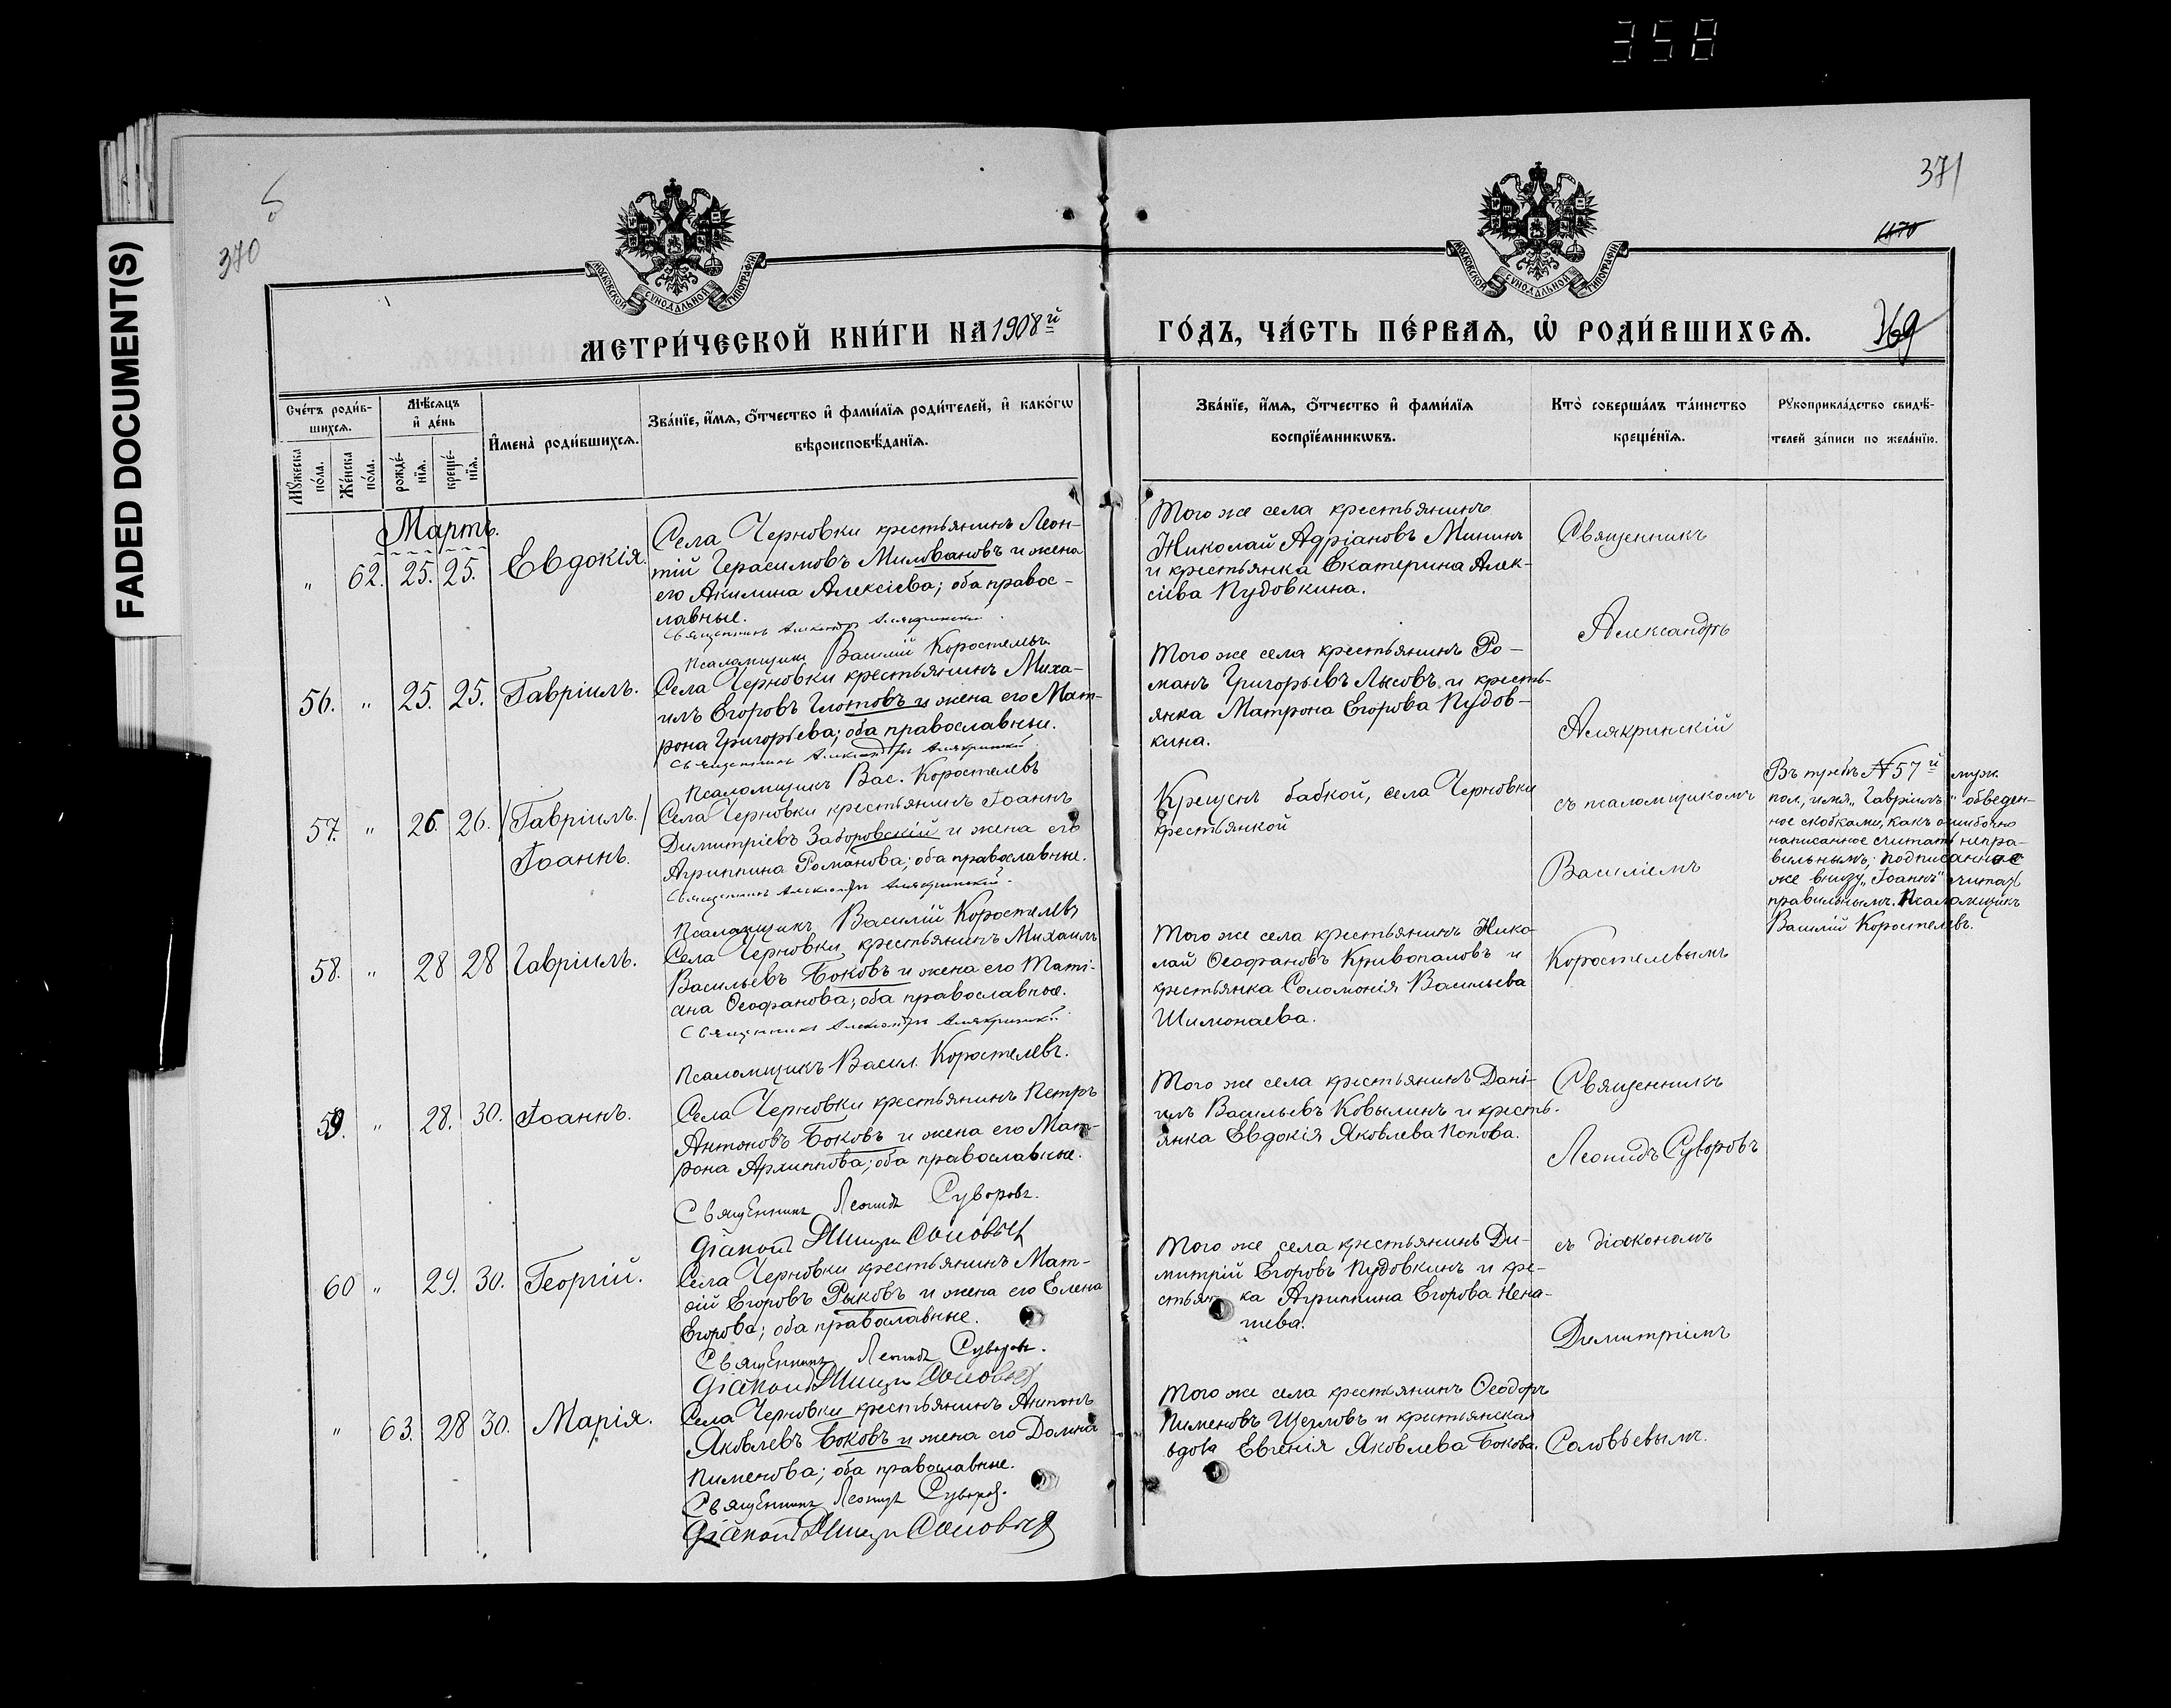 358
FADED DOCUMENT(S)
370
371
1470
369
МОСКОВСКОЙ СѴНОДАЛЬНОЙ ТИПОГРАФІИ
МОСКОВСКОЙ СѴНОДАЛЬНОЙ ТИПОГРАФІИ
МЕТРИ́ЧЕСКОЙ КНИ́ГИ НА 1908й
ГО́ДЪ, ЧА́СТЬ ПЕ́РВАѦ, Ѡ҆ РОДИ́ВШИХСѦ.
Сче́тъ роди́в-
шихсѧ.
Мꙋ́жеска
по́ла.
Же́нска
по́ла.
Мѣ́сѧцъ
и҆ де́нь
рожде́-
нїѧ.
креще́-
нїѧ.
И҆мена̀ роди́вшихсѧ.
Зва́нїе, и҆́мѧ, ѻ҆́тчество и҆ фами́лїѧ роди́телей, и҆ како́гѡ
вѣроисповѣ́данїѧ.
Зва́нїе, и҆́мѧ, ѻ҆́тчество и҆ фами́лїѧ
воспрїе́мникѡвъ.
Кто̀ соверша́лъ та́инство
креще́нїѧ.
Рꙋкоприкла́дство свидѣ́-
телей за́писи по жела́нїю.
Мартъ.
„ 62. 25. 25. Евдокія.
Села Черновки крестьянинъ Леон-
тій Герасимовъ Миловановъ и жена
его Акилина Алексіева; оба правос-
лавные.
Священникъ Александръ Алякринскій
Псаломщикъ Василій Коростелевъ
Того же села крестьянинъ
Николай Адріановъ Мининъ
и крестьянка Екатерина Алек-
сіева Пудовкина.
Священникъ
Александръ
56. „ 25. 25. Гавріилъ.
Села Черновки крестьянинъ Миха-
илъ Егоровъ Глотовъ и жена его Мат-
рона Григорьева; оба православные.
Священникъ Александръ Алякринскій
Псаломщикъ Вас. Коростелевъ
Того же села крестьянинъ Ро-
манъ Григорьевъ Лысовъ и кресть-
янка Матрона Егорова Пудов-
кина.
Алякринскій
57. „ 26. 26. /Гавріилъ./
Іоаннъ.
Села Черновки крестьянинъ Іоаннъ
Димитріевъ Заборовскій и жена его
Агриппина Романова; оба православные.
Священникъ Александръ Алякринскій.
Псаломщикъ Василій Коростелевъ
Крещенъ бабкой, села Черновки
крестьянкой
съ псаломщикомъ
Василіемъ
Въ требѣ №57й муж.
пол, имя „Гавріилъ“ обведен-
ное скобками, какъ ошибочно
написанное считать непра-
вильнымъ; подписанное
же внизу „Іоаннъ“ считать
правильнымъ. Псаломщикъ
Василій Коростелевъ.
58. „ 28 28 Гавріилъ.
Села Черновки, крестьянинъ Михаилъ
Васильевъ Боковъ и жена его Тати-
ана Ѳеофанова; оба православные.
Священникъ Александръ Алякринскій
Псаломщикъ Васил. Коростелевъ.
Того же села крестьянинъ Нико
лай Ѳеофановъ Кривопаловъ и
крестьянка Соломонія Васильева
Шимонаева.
Коростелевымъ
59. „ 28. 30. Іоаннъ.
Села Черновки крестьянинъ Петръ
Антоновъ Боковъ и жена его Мат-
рона Архиппова; оба православные.
Священникъ Леонидъ Суворовъ.
Діаконъ Димитрій Соловьевъ
Того же села крестьянинъ Дані-
илъ Васильевъ Ковылинъ и кресть-
янка Евдокія Яковлева Попова.
Священникъ
Леонидъ Суворовъ
60 „ 29. 30. Георгій.
Села Черновки крестьянинъ Мат-
ѳій Егоровъ Рыковъ и жена его Елена
Егорова; оба православные.
Священникъ Леонидъ Суворовъ.
Діаконъ Димитрій Соловьевъ
Того же села крестьянинъ Ди-
митрій Егоровъ Пудовкинъ и кре-
стьян ка Агриппина Егорова Нена-
шева.
съ діакономъ
Димитріемъ
„ 63. 28 30. Марія.
Села Черновки крестьянинъ Антонъ
Яковлевъ Боковъ и жена его Домна
Пименова; оба православные.
Священникъ Леонидъ Суворовъ.
Діаконъ Димитрій Соловьевъ
Того же села крестьянинъ Ѳеодоръ
Пименовъ Щегловъ и крестьянская
вдова Евгенія Яковлева Бокова.
Соловьевымъ.